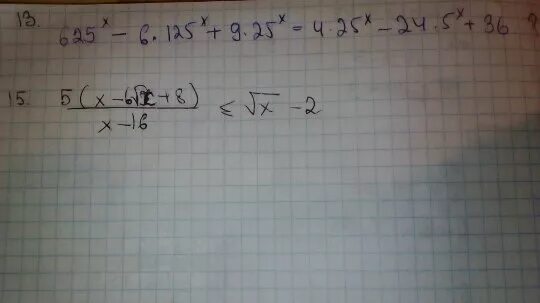 13. 625ˣ − 6·125ˣ + 9·25ˣ = 4·25ˣ − 24·5ˣ + 36 ?
15. 5(x−6√x+8)/(x−16) ≤ √x − 2